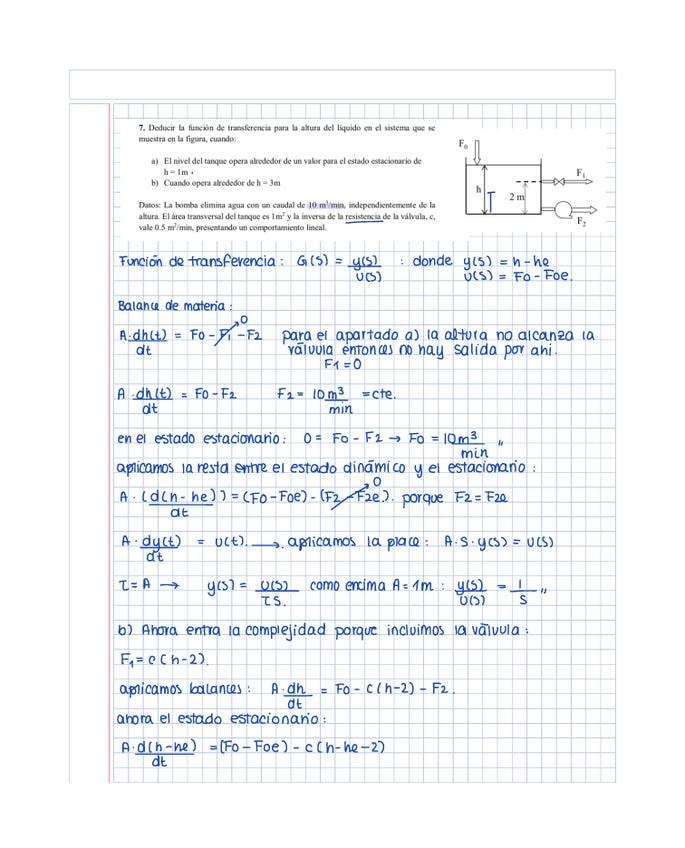 7. Deducir la función de transferencia para la altura del líquido en el sistema que se
muestra en la figura, cuando:
a) El nivel del tanque opera alrededor de un valor para el estado estacionario de
h = 1m
b) Cuando opera alrededor de h = 3m
Datos: La bomba elimina agua con un caudal de 10 m³/min, independientemente de la
altura. El área transversal del tanque es 1m² y la inversa de la resistencia de la válvula, c,
vale 0.5 m²/min, presentando un comportamiento lineal.
F₀
F₁
h
2 m
F₂
Función de transferencia : G(s) = y(s)/U(s) : donde y(s) = h-he
U(s) = Fo - Foe.
Balance de materia :
A·dh(t)/dt = Fo - F₁ - F2 para el apartado a) la altura no alcanza la
0
válvula entonces no hay salida por ahi.
F1 = 0
A·dh(t)/dt = Fo - F2 F2 = 10 m³/min = cte.
en el estado estacionario: 0 = Fo - F2 → Fo = 10 m³/min "
aplicamos la resta entre el estado dinámico y el estacionario :
A·(d(h-he))/dt = (Fo - Foe) - (F2 - F2e). porque F2 = F2e
0
A·dy(t)/dt = U(t). → aplicamos la place : A·S·y(s) = U(s)
τ = A → y(s) = U(s)/τS. como encima A = 1m : y(s)/U(s) = 1/S "
b) Ahora entra la complejidad porque incluimos la válvula :
F₁ = c(h-2).
aplicamos balances : A·dh/dt = Fo - c(h-2) - F2.
ahora el estado estacionario :
A·d(h-he)/dt = (Fo - Foe) - c(h-he-2)